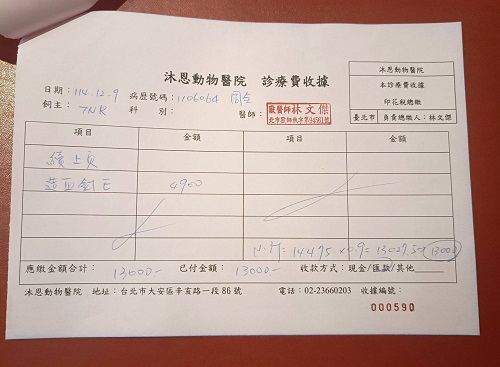 沐恩動物醫院 診療費收據
沐恩動物醫院
本診療費收據
印花稅總繳
臺北市 負責總繳人：林文傑
日期：114.12.9 病歷號碼：1106064
飼主：TNR 科別： 醫師： 獸醫師林文傑
北市獸師執字第94561號
項目 金額 項目 金額
續上頁
造血針 4900
= 14475 x0.9= 13027.5 13000
應繳金額合計：13000- 已付金額：13000- 收款方式：現金/匯款/其他
沐恩動物醫院 地址：台北市大安區辛亥路一段86號 電話：02-23660203 收據編號：
000590